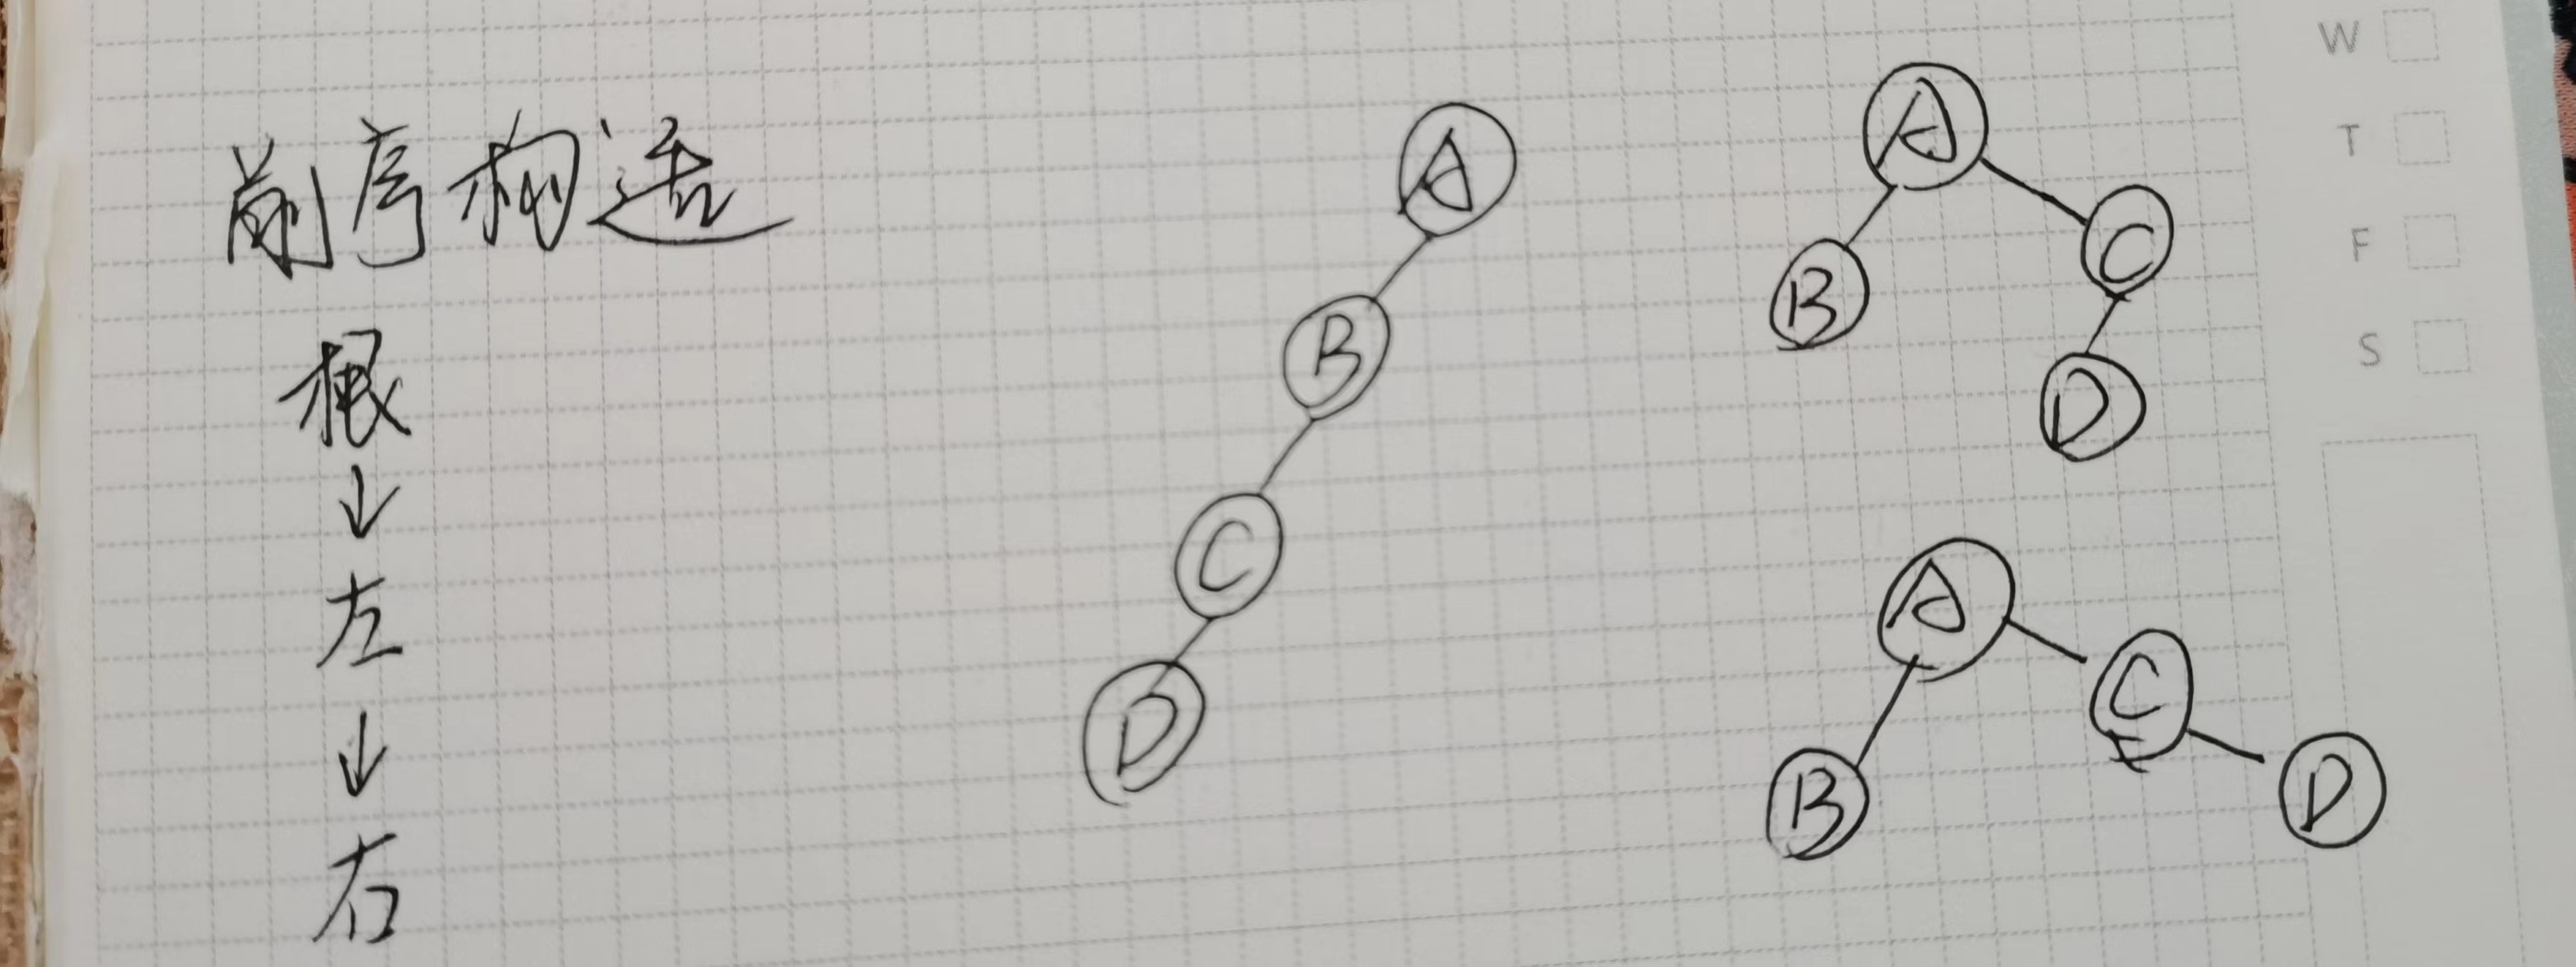 前序构造
根
↓
左
↓
右
A
B
C
D
A
B
C
D
A
B
C
D
W
T
F
S